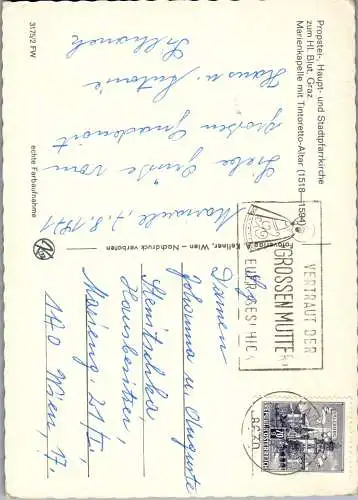 Propstei-, Haupt- und Stadtpfarrkirche
zum Hl. Blut, Graz
Marienkapelle mit Tintoretto-Altar (1518—1594)
Mariazell, 7.8.1971
Liebe Grüße vom
großen Gnadenort
Hans u. Antonie
3175/2 FW
echte Farbaufnahme
Fotoverlag A. Kellner, Wien - Nachdruck verboten
VERTRAUT DER
GROSSEN MUTTER
EUER GESCHICK
8630
Damen
Johanna u. Auguste
Hausbesitzer,
Marieng. 21/I,
1170 Wien, 17.
70